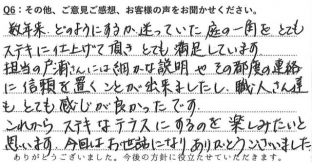 Q6：その他、ご意見ご感想、お客様の声をお聞かせください。
数年来、どのようにするか迷っていた庭の一角をとても
ステキに仕上げて頂きとても満足しています
担当の戸浦さんには細かな説明やその都度の連絡
に信頼を置くことが出来ましたし、職人さん達
もとても感じが良かったです。
これからステキなテラスにするのを楽しみたいと
思います。今回はお世話になりありがとうございました。
ありがとうございました。今後の方針に役立たせていただきます。